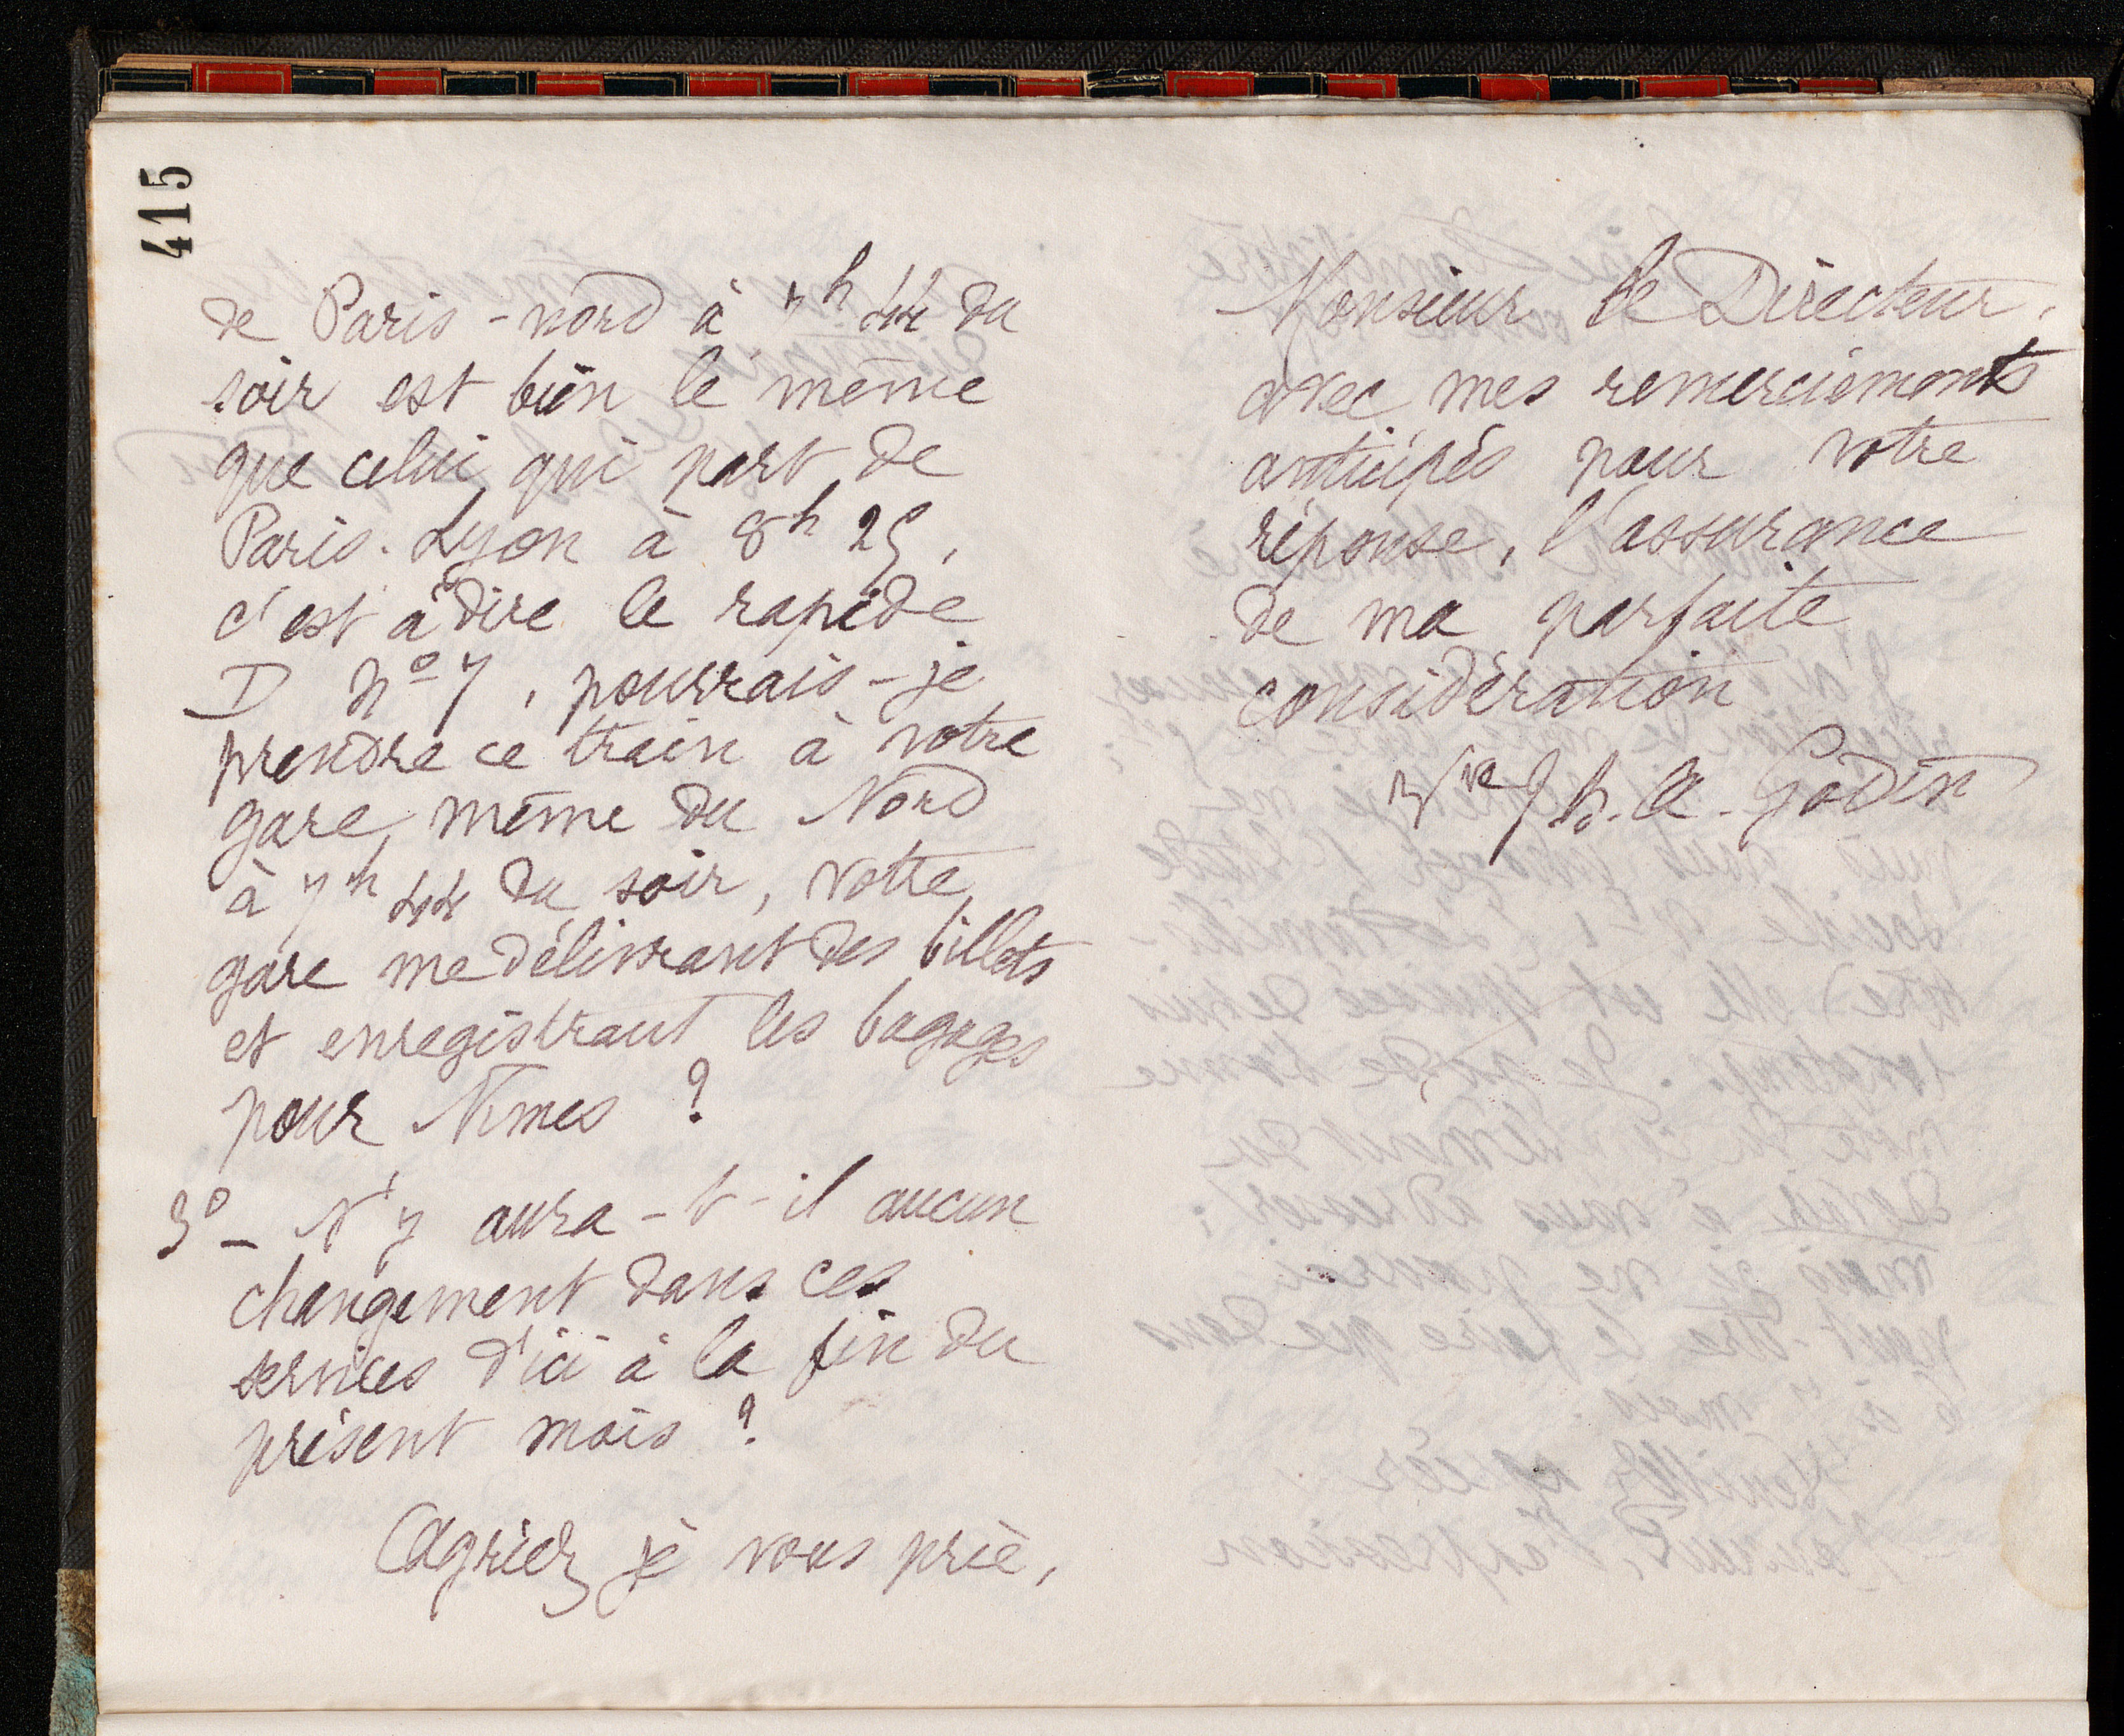 415
de Paris-nord à 7h 44 du
soir est bien le même
que celui qui part de
Paris-Lyon à 8h 25,
c'est à dire le rapide
D No 7, pourrais-je
prendre ce train à votre
gare même du Nord
à 7h 44 du soir, votre
gare me délivrant des billets
et enregistrant les bagages
pour Nîmes ?
3o - N'y aura-t-il aucun
changement dans ces
services d'ici à la fin du
présent mois ?
Agréez je vous prie,
Monsieur le Directeur,
avec mes remerciements
anticipés pour votre
réponse, l'assurance
de ma parfaite
considération
Vve J. B. A. Godin